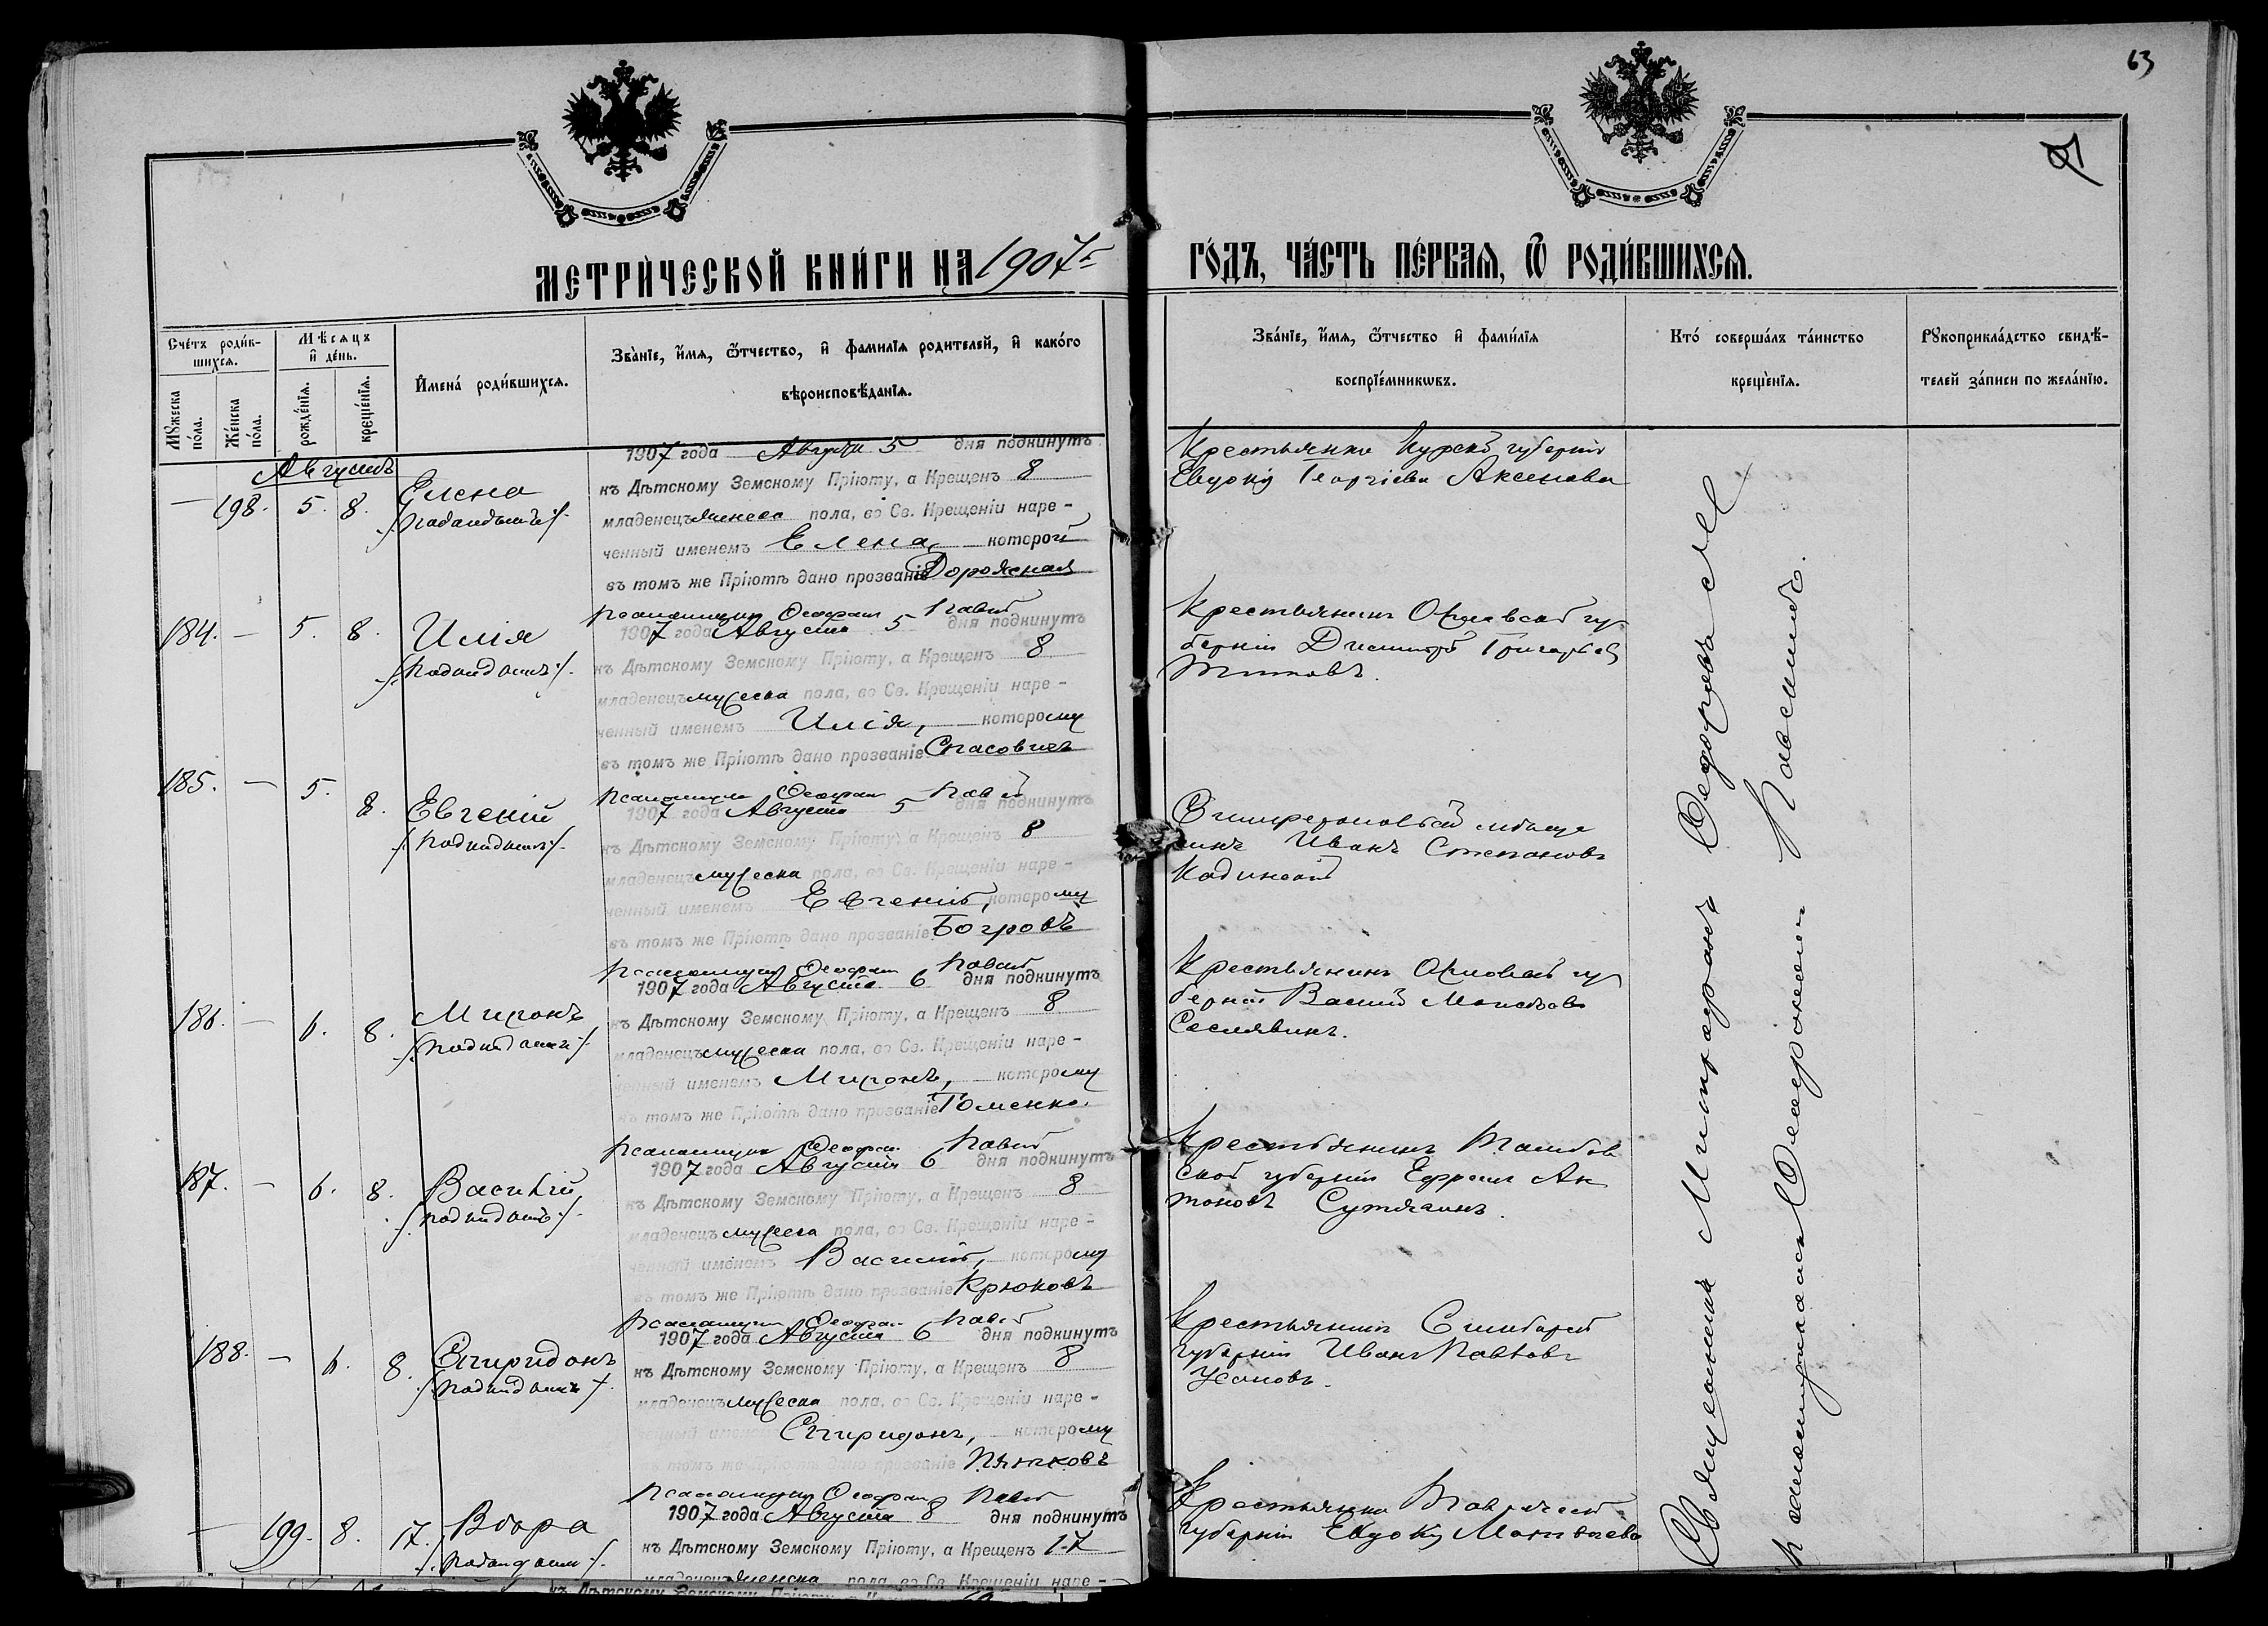 63
МЕТРИЧЕСКОЙ КНИГИ НА 1907 г. ГОДЪ, ЧАСТЬ ПЕРВАЯ, Ѿ РОДИВШИХСЯ.
Счетъ родившихся.
Мужеска пола.
Женска пола.
Мѣсяцъ и день.
рожденія.
крещенія.
Имена родившихся.
Званіе, имя, ѿтчество, и фамилія родителей, и какого
вѣроисповѣданія.
Званіе, имя, ѿтчество и фамилія
воспріемниковъ.
Кто совершалъ таинство
крещенія.
Рукоприкладство свидѣ-
телей записи по желанію.
Августъ
— 198. 5. 8. Елена
/подкидышъ/.
1907 года Августа 5 дня подкинутъ
къ Дѣтскому Земскому Пріюту, а Крещенъ 8
младенецъ женска пола, во Св. Крещеніи наре-
ченный именемъ Елена, которой
въ томъ же Пріютѣ дано прозваніе Дорожная
Крестьянка Курской губерніи
Евдокія Георгіева Аксенова
184. — 5. 8. Илія
/подкидышъ/.
Псаломщикъ
1907 года Августа 5 дня подкинутъ
къ Дѣтскому Земскому Пріюту, а Крещенъ 8
младенецъ мужеска пола, во Св. Крещеніи наре-
ченный именемъ Илія, которому
въ томъ же Пріютѣ дано прозваніе Спасовичъ
Крестьянинъ Орловской гу-
берніи Димитрій Григорьевъ
Титовъ.
185. — 5. 8. Евгеній
/подкидышъ/.
Псаломщикъ
1907 года Августа 5 дня подкинутъ
къ Дѣтскому Земскому Пріюту, а Крещенъ 8
младенецъ мужеска пола, во Св. Крещеніи наре-
ченный именемъ Евгеній, которому
въ томъ же Пріютѣ дано прозваніе Богровъ
Симферопольскій мѣща-
нинъ Иванъ Степановъ
186. — 6. 8. Миронъ
/подкидышъ/.
Псаломщикъ
1907 года Августа 6 дня подкинутъ
къ Дѣтскому Земскому Пріюту, а Крещенъ 8
младенецъ мужеска пола, во Св. Крещеніи наре-
ченный именемъ Миронъ, которому
въ томъ же Пріютѣ дано прозваніе Гоменко.
Крестьянинъ Орловской гу-
берніи Василій Моисѣевъ
Сеславинъ.
187. — 6. 8. Василій
/подкидышъ/.
Псаломщикъ
1907 года Августа 6 дня подкинутъ
къ Дѣтскому Земскому Пріюту, а Крещенъ 8
младенецъ мужеска пола, во Св. Крещеніи наре-
ченный именемъ Василій, которому
въ томъ же Пріютѣ дано прозваніе Крюковъ
Крестьянинъ Тамбов-
ской губерніи Ефремъ Ан-
тоновъ Сутягинъ.
188. — 6. 8. Спиридонъ
/подкидышъ/.
Псаломщикъ
1907 года Августа 6 дня подкинутъ
къ Дѣтскому Земскому Пріюту, а Крещенъ 8
младенецъ мужеска пола, во Св. Крещеніи наре-
ченный именемъ Спиридонъ, которому
въ томъ же Пріютѣ дано прозваніе Пятковъ
Крестьянинъ Симбирской
губерніи Иванъ Павловъ
— 199. 8. 17. Вѣра
/подкидышъ/.
Псаломщикъ
1907 года Августа 8 дня подкинутъ
къ Дѣтскому Земскому Пріюту, а Крещенъ 17
младенецъ женска пола, во Св. Крещеніи наре-
Крестьянка Таврической
губерніи Евдокія Матвѣева
Священникъ Митрофанъ